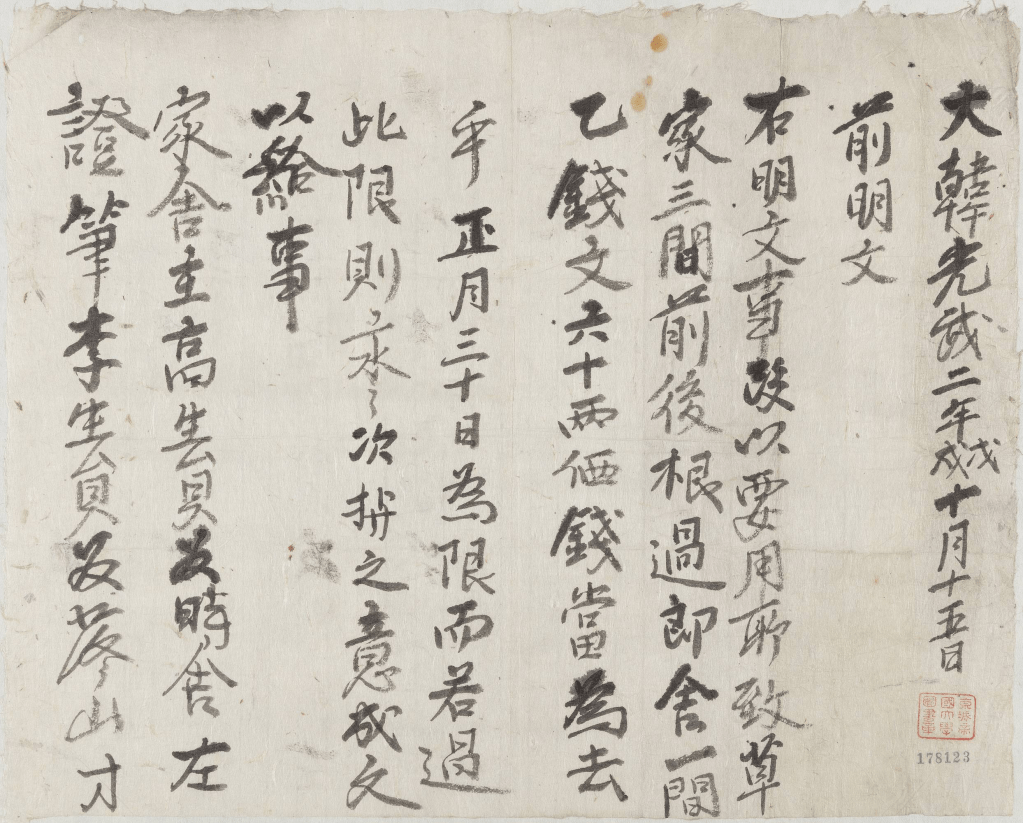 大韓光武二年戊戌十月十五日
前明文
右明文事段以要用所致草
家三間前後根過郎舍一間
乙錢文六十兩価錢當為去
乎正月三十日為限而若過
此限則永永次持之意成文
以給事
家舍主高生員 時舍 左
證筆李生員 山 寸
178123